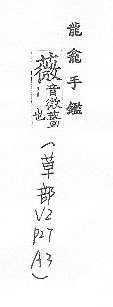 龍龕手鑑
薇 音微 也
（草部 V2 P27 A3）